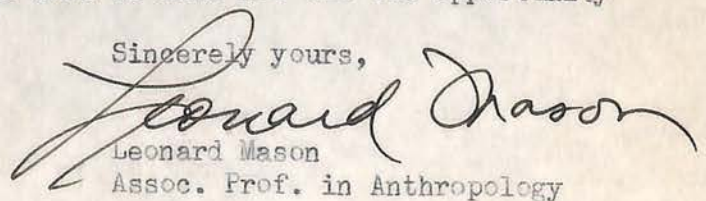 opportunity
Sincerely yours,
Leonard Mason
Leonard Mason
Assoc. Prof. in Anthropology